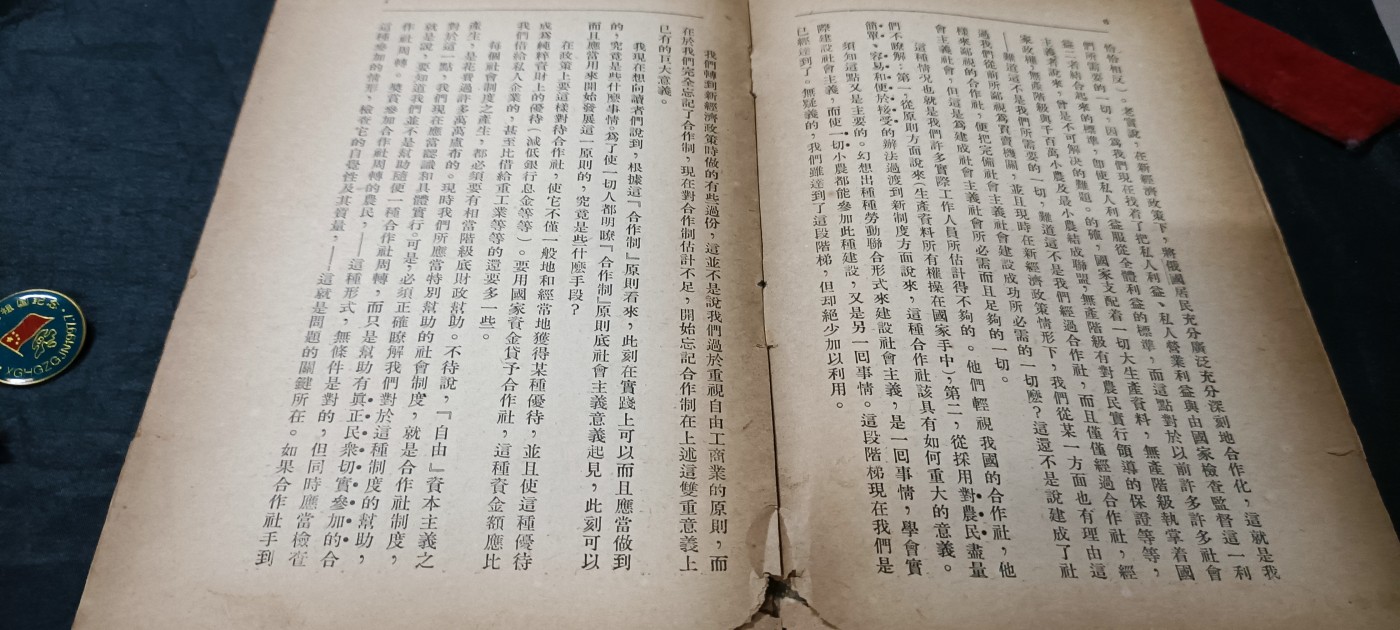 6
恰恰相反)。老實說，在新經濟政策下，將俄國居民充分廣泛充分深刻地合作化，這就是我
們所需要的一切，因爲我們現在找着了把私人利益、私人營業利益與由國家檢查監督這一利
益二者結合起來的標準，卽使私人利益服從全體利益的標準，而這點對於以前許多許多社會
主義者說來，曾是不可解決的難題。的確，國家支配着一切大生產資料，無產階級執掌着國
家政權，無產階級與千百萬小農及最小農結成聯盟，無產階級有對農民實行領導的保證等等，
——難道這不是我們所需要的一切，難道這不是我們經過合作社，而且僅僅經過合作社，經
過我們從前所鄙視爲買賣機關，並且現時在新經濟政策情形下，我們從某一方面也有理由這
樣來鄙視的合作社，便把完備社會主義社會建設成功所必需的一切麼？這還不是說建成了社
會主義社會，但這是爲建成社會主義社會所必需而且足夠的一切。
這種情况也就是我們許多實際工作人員所估計得不夠的。他們輕視我國的合作社，他
們不瞭解：第一，從原則方面說來(生產資料所有權操在國家手中)，第二，從採用對農民儘量
簡單、容易和便於接受的辦法過渡到新制度方面說來，這種合作社該具有如何重大的意義。
須知這點又是主要的。幻想出種種勞動聯合形式來建設社會主義，是一回事情，學會實
際建設社會主義，而使一切小農都能參加此種建設，又是另一回事情。這段階梯現在我們是
已經達到了。無疑義的，我們雖達到了這段階梯，但却絕少加以利用。
我們轉到新經濟政策時做的有些過份，這並不是說我們過於重視自由工商業的原則，而
在於我們完全忘記了合作制，現在對合作制估計不足，開始忘記合作制在上述這雙重意義上
已有的巨大意義。
我現在想向讀者們說到，根據這『合作制』原則看來，此刻在實踐上可以而且應當做到
的，究竟是些什麼事情。爲了使一切人都明瞭『合作制』原則底社會主義意義起見，此刻可以
而且應當用來開始發展這一原則的，究竟是些什麼手段？
在政策上要這樣對待合作社，使它不僅一般地和經常地獲得某種優待，並且使這種優待
成爲純粹資財上的優待（減低銀行息金等等）。要用國家資金貸予合作社，這種資金額應比
我們借給私人企業的，甚至比借給重工業等等的還要多一些。
每個社會制度之產生，都必須要有相當階級底財政幫助。不待說，『自由』資本主義之
產生，是花費過許多萬萬盧布的。現時我們所應當特別幫助的社會制度，就是合作社制度，
對於這一點，我們現在應當認識和具體實行。可是，必須正確瞭解我們對於這種制度的幫助，
就是說，要知道我們並不是幫助隨便一種合作社周轉，而只是幫助有眞正民衆切實參加的合
作社周轉。獎賞參加合作社周轉的農民，——這種形式，無條件是對的，但同時應當檢查
這種參加的情形，檢查它的自覺性及其質量，——這就是問題的關鍵所在。如果合作社手到